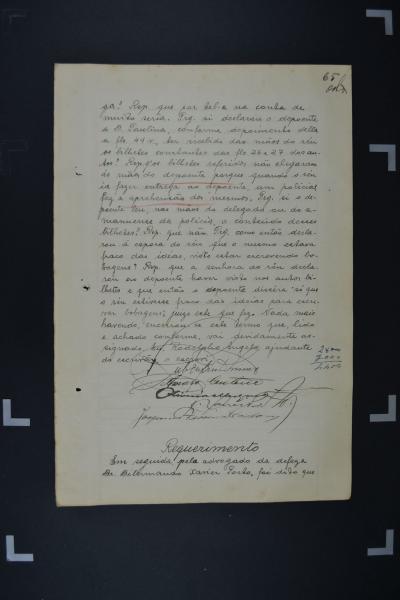 65
ga? Resp. que por tel-a na conta de
muito seria. Prg. si declarou o depoente
a D. Paulina, conforme depoimento della
a fls. 44 v., ter recebido das mãos do réu
os bilhetes constantes das fls. 26 e 27 dos au-
tos? Resp. q' os bilhetes referidos não chegaram
ás mãos do depoente porque quando o réu
ia fazer entrega ao depoente, um policial
fez a aprehensão dos mesmos. Prg. si o de-
poente leu, nas mãos do delegado ou do a-
manuense de policia, o conteúdo desses
bilhetes? Resp. que não. Prg. como então decla-
rou á esposa do réu que o mesmo estava
fraco das ideas, visto estar escrevendo bo-
bagens? Resp. que a senhora do réu decla-
rou ao depoente haver visto nos autos bi-
lhetes e que então o depoente dissera si que
o réu estivesse fraco das ideias para escre-
ver bobagens; juizo este que fez. Nada mais
havendo, encerrou-se este termo que, lido
e achado conforme, vai devidamente as-
signado. Eu, ajudante
do escrivão o escrevi.
Requerimento
Em seguida, pelo advogado da defeza
Dr. Dilermando Xavier Porto, foi dito que